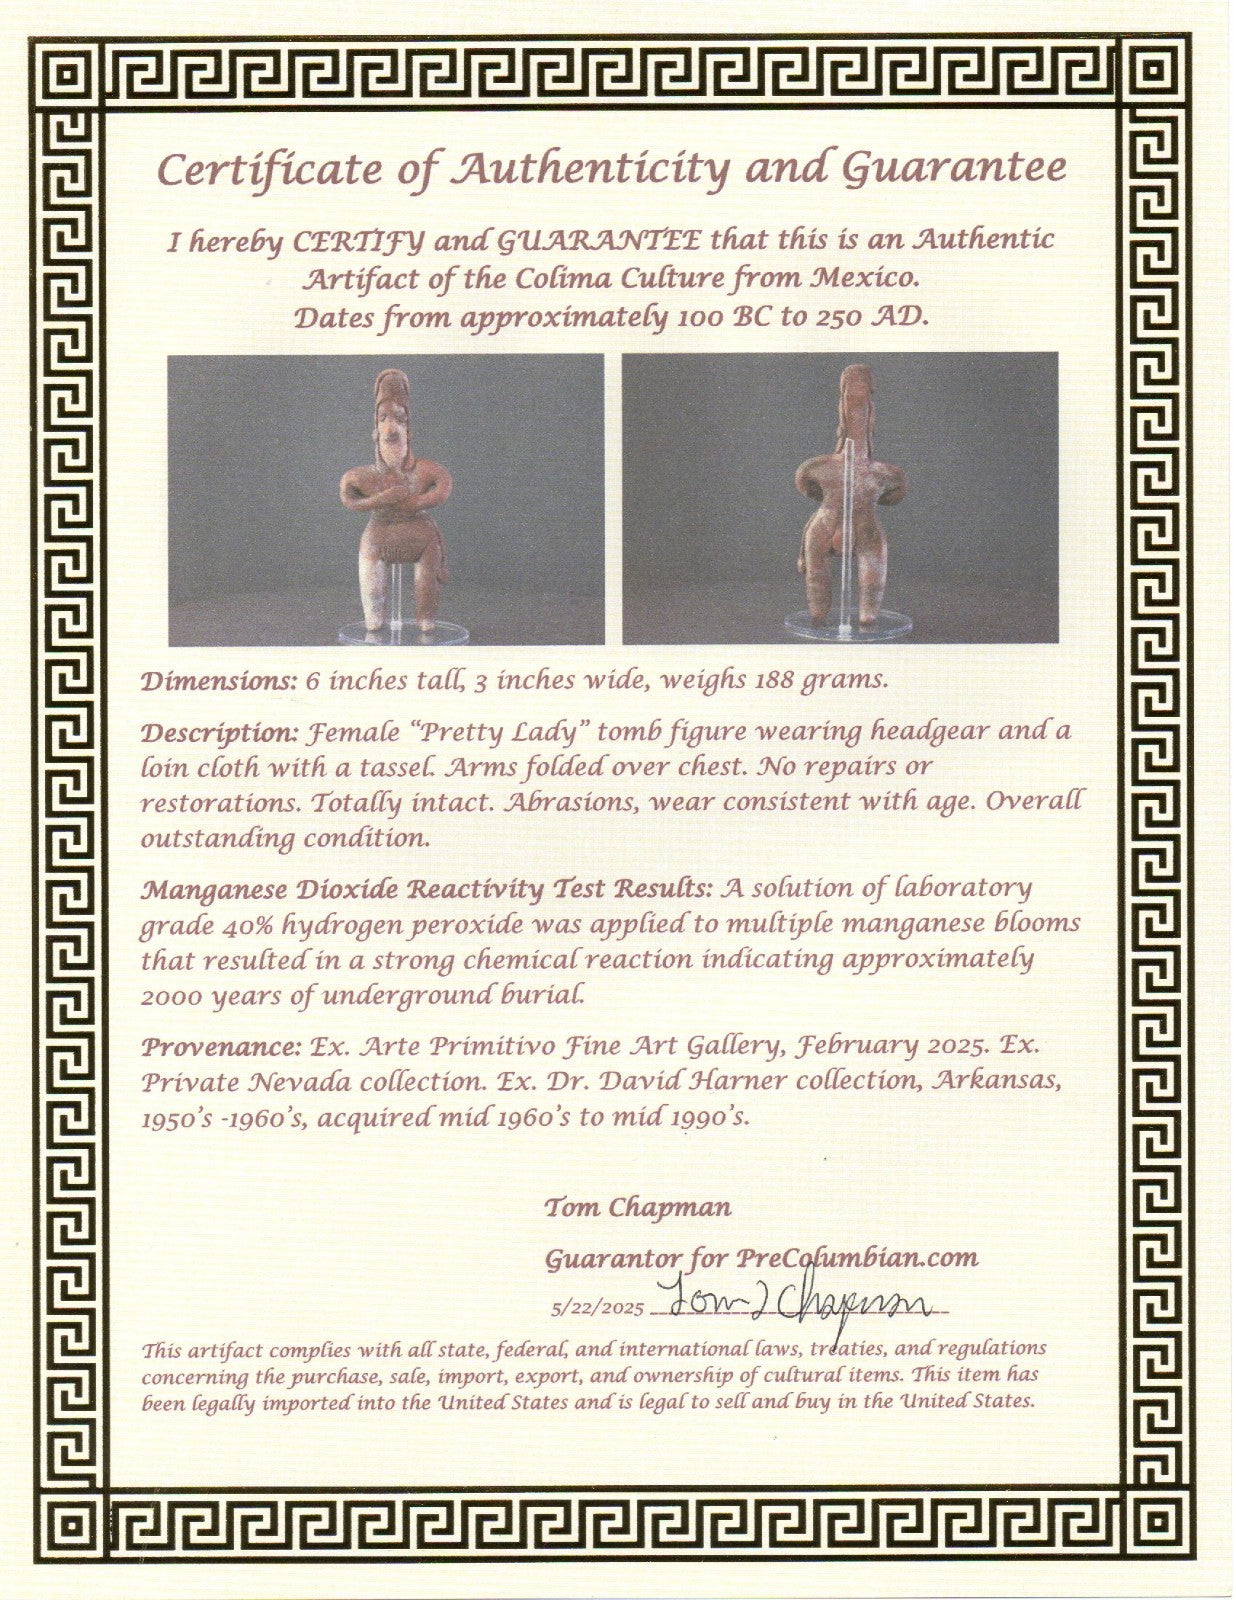 Certificate of Authenticity and Guarantee
I hereby CERTIFY and GUARANTEE that this is an Authentic
Artifact of the Colima Culture from Mexico.
Dates from approximately 100 BC to 250 AD.
Dimensions: 6 inches tall, 3 inches wide, weighs 188 grams.
Description: Female “Pretty Lady” tomb figure wearing headgear and a
loin cloth with a tassel. Arms folded over chest. No repairs or
restorations. Totally intact. Abrasions, wear consistent with age. Overall
outstanding condition.
Manganese Dioxide Reactivity Test Results: A solution of laboratory
grade 40% hydrogen peroxide was applied to multiple manganese blooms
that resulted in a strong chemical reaction indicating approximately
2000 years of underground burial.
Provenance: Ex. Arte Primitivo Fine Art Gallery, February 2025. Ex.
Private Nevada collection. Ex. Dr. David Harner collection, Arkansas,
1950’s -1960’s, acquired mid 1960’s to mid 1990’s.
Tom Chapman
Guarantor for PreColumbian.com
5/22/2025 Tom J Chapman
This artifact complies with all state, federal, and international laws, treaties, and regulations
concerning the purchase, sale, import, export, and ownership of cultural items. This item has
been legally imported into the United States and is legal to sell and buy in the United States.